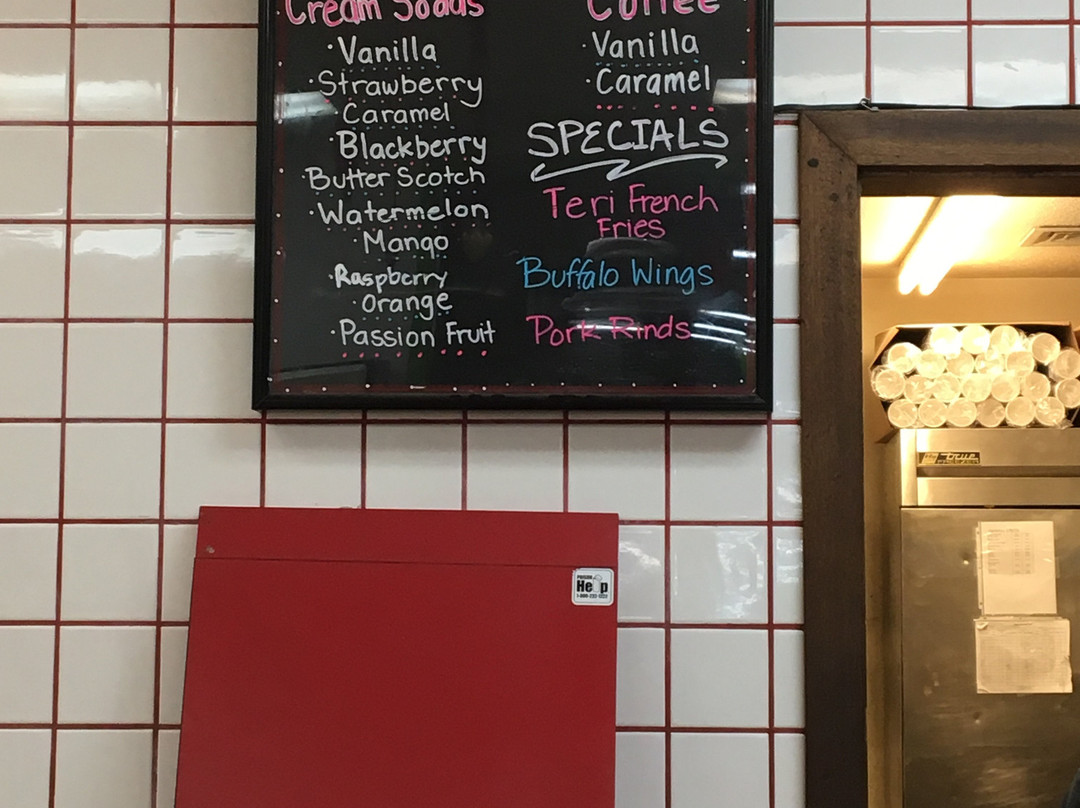 Cream Sodas
· Vanilla
· Strawberry
Caramel
· Blackberry
· Butter Scotch
· Watermelon
· Mango
· Raspberry
· Orange
· Passion Fruit
Coffee
· Vanilla
· Caramel
SPECIALS
Teri French
Fries
Buffalo Wings
Pork Rinds
POISON
Help
1-800-222-1222
true